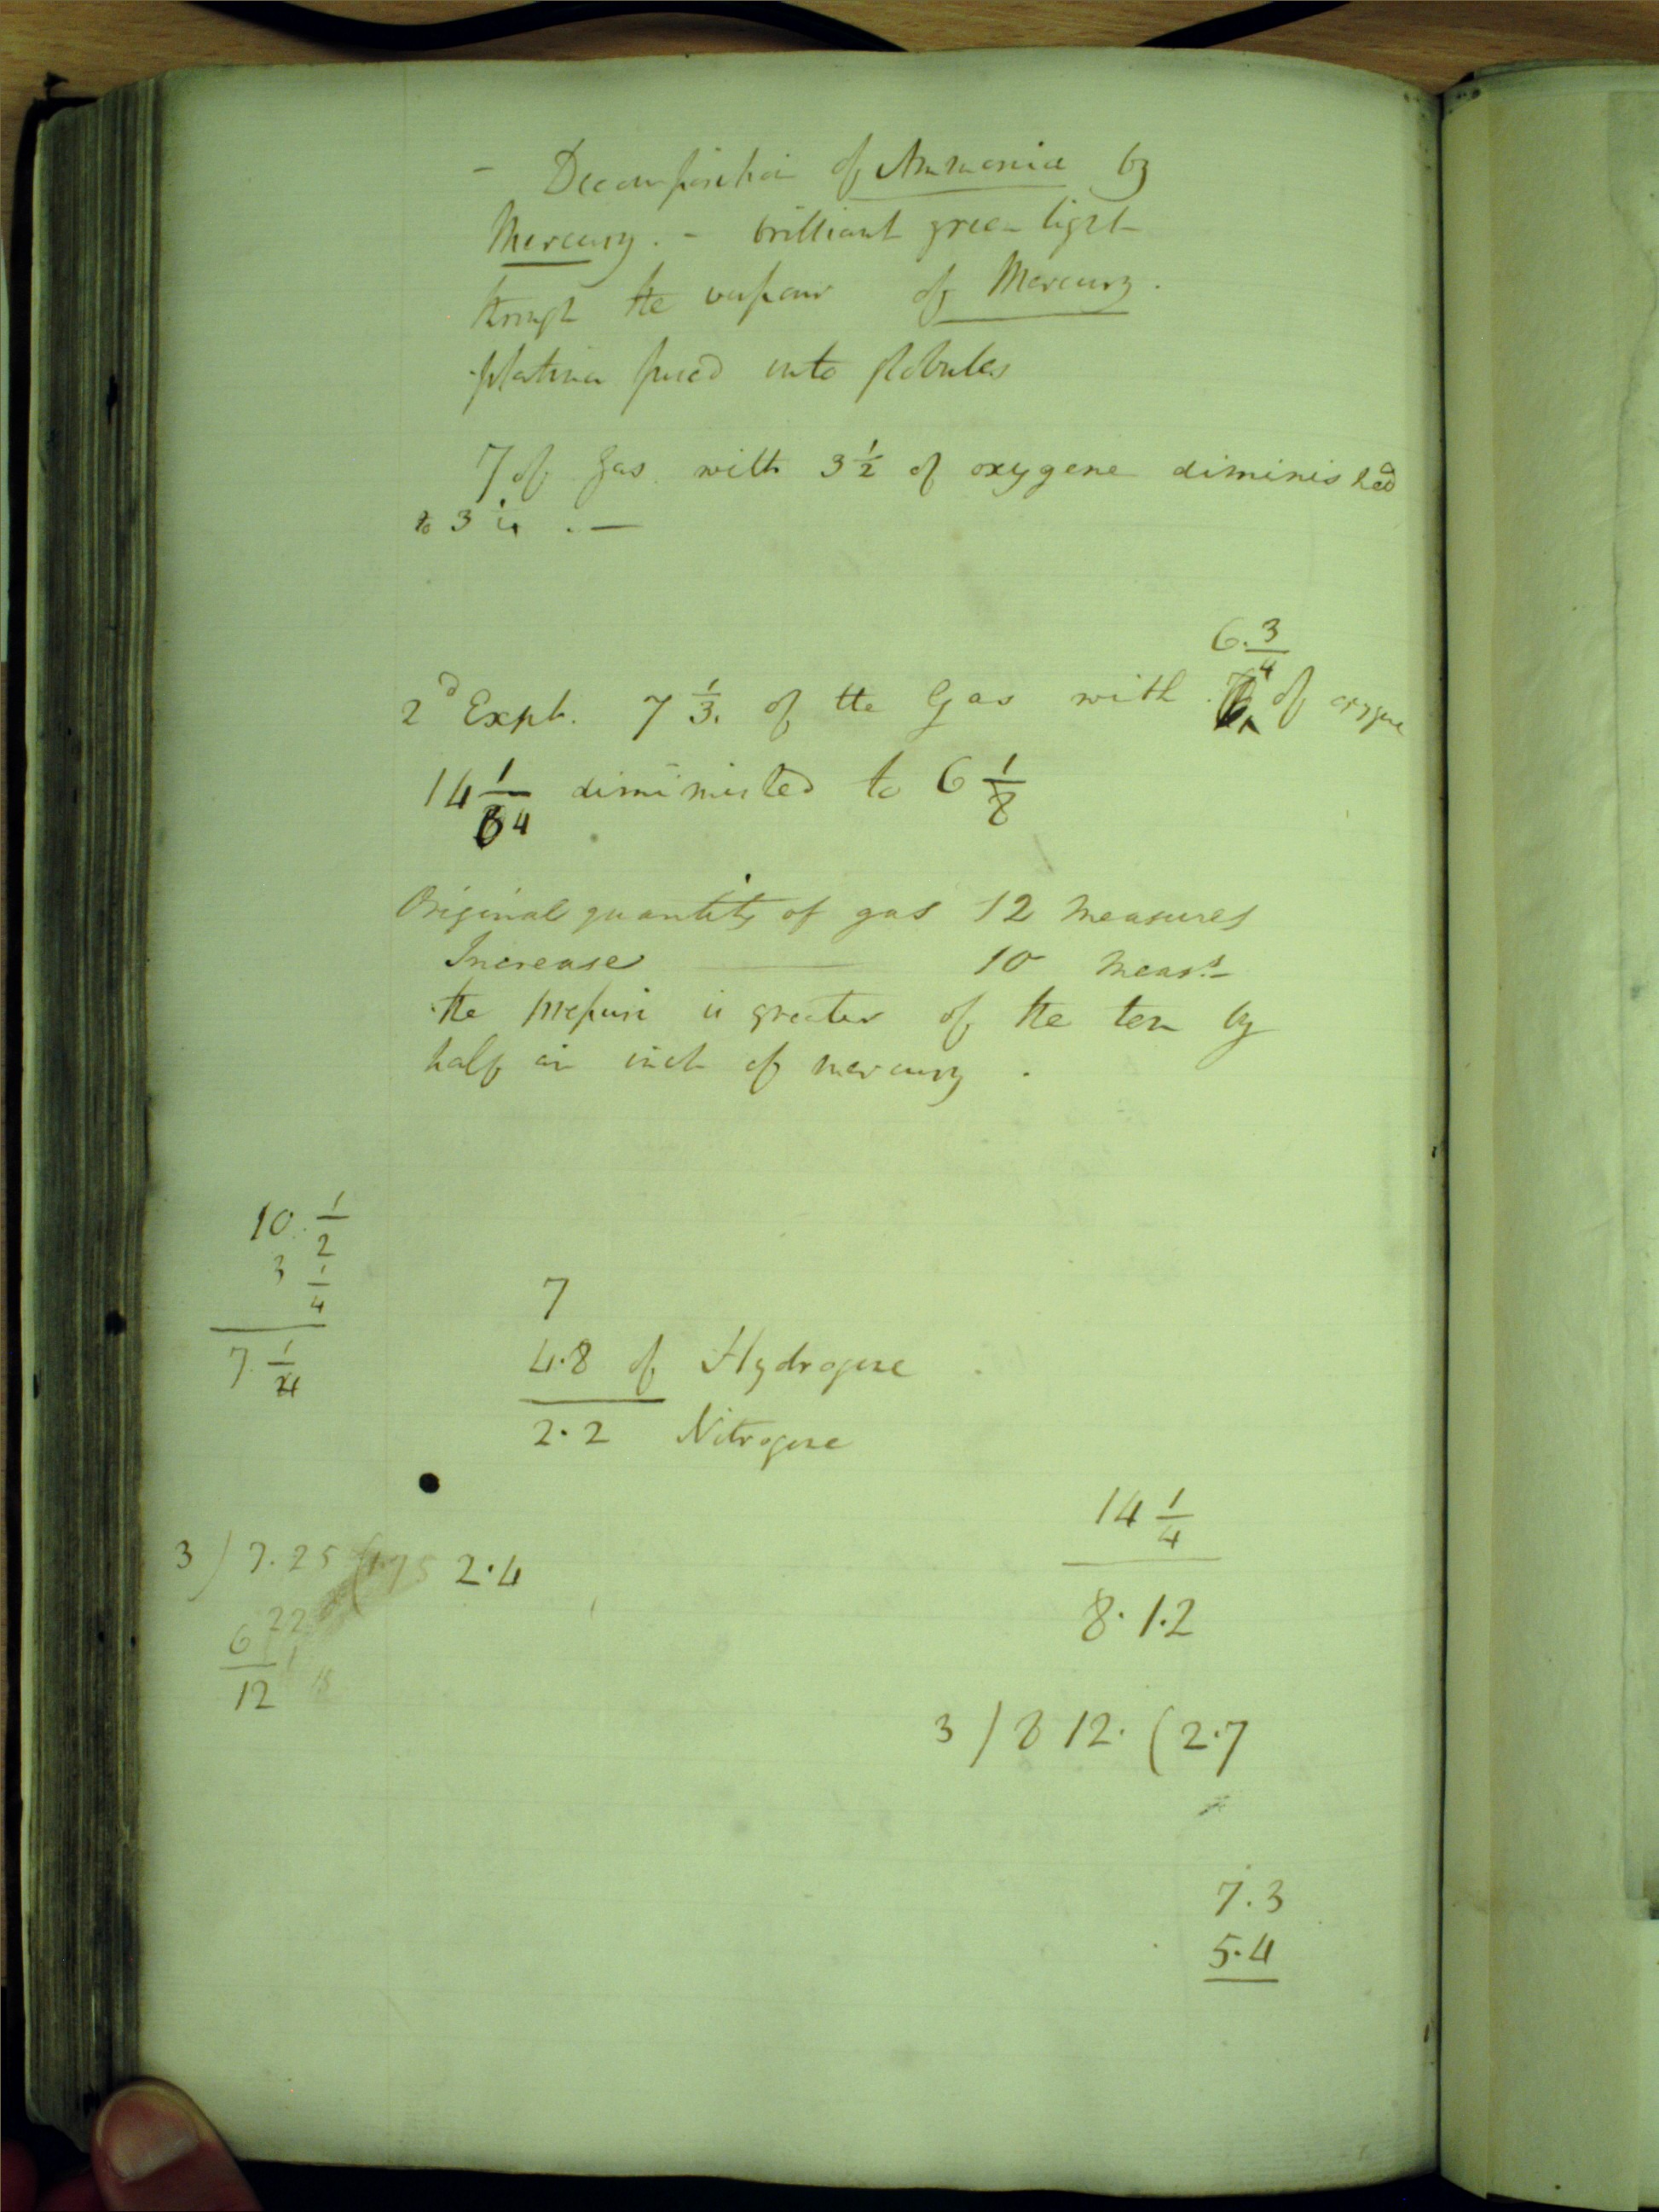 - Decomposition of Ammonia by
Mercury. - brilliant green light
through the vapour of Mercury.
platina fused into globules
7 of gas with 3 1/2 of oxygene diminished
to 3 1/4 . —
6. 3/4
2d Expt. 7 1/3. of the Gas with of oxygene
14 1/4 diminished to 6 1/8
Original quantity of gas 12 measures
Increase —— 10 meas.s
the pressure is greater of the ten by
half an inch of mercury .
10. 1/2
3 1/4
7. 1/4
7
4.8 of Hydrogene
2.2 Nitrogene
3 ) 7.25 ( 2.4
6
12
14 1/4
8.1.2
3 ) 8 12. ( 2.7
7.3
5.4